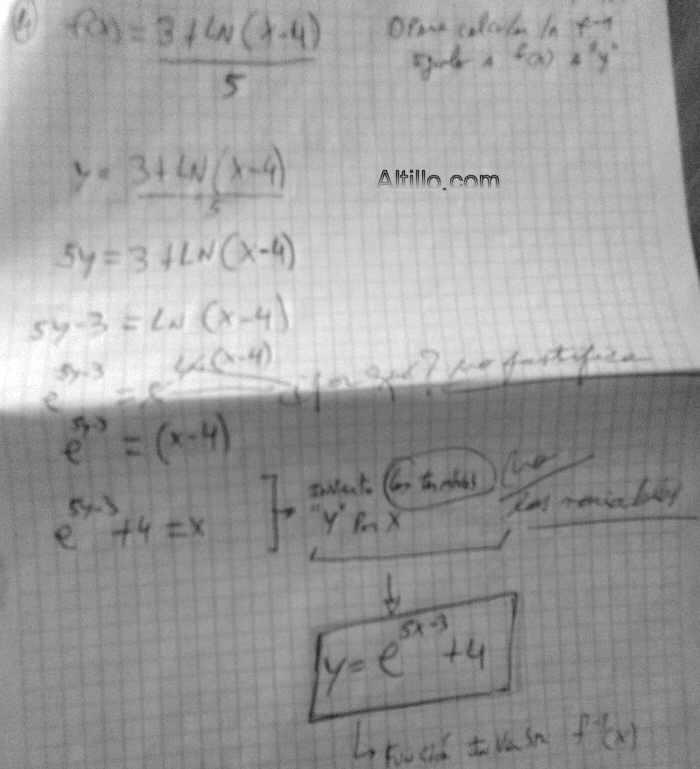 f(x) = 3+LN(x-4)
5
① Para calcular la f-1
igualo a f(x) a "y"
y = 3+LN(x-4)
5
Altillo.com
5y = 3+LN(x-4)
5y-3 = LN(x-4)
e^5y-3 = e^LN(x-4) ¿por qué? no justifica
e^5y-3 = (x-4)
e^5y-3 +4 = x
Invierto los términos (no
las variables
"Y" Por X
y = e^5x-3 +4
Función Inversa f-1(x)